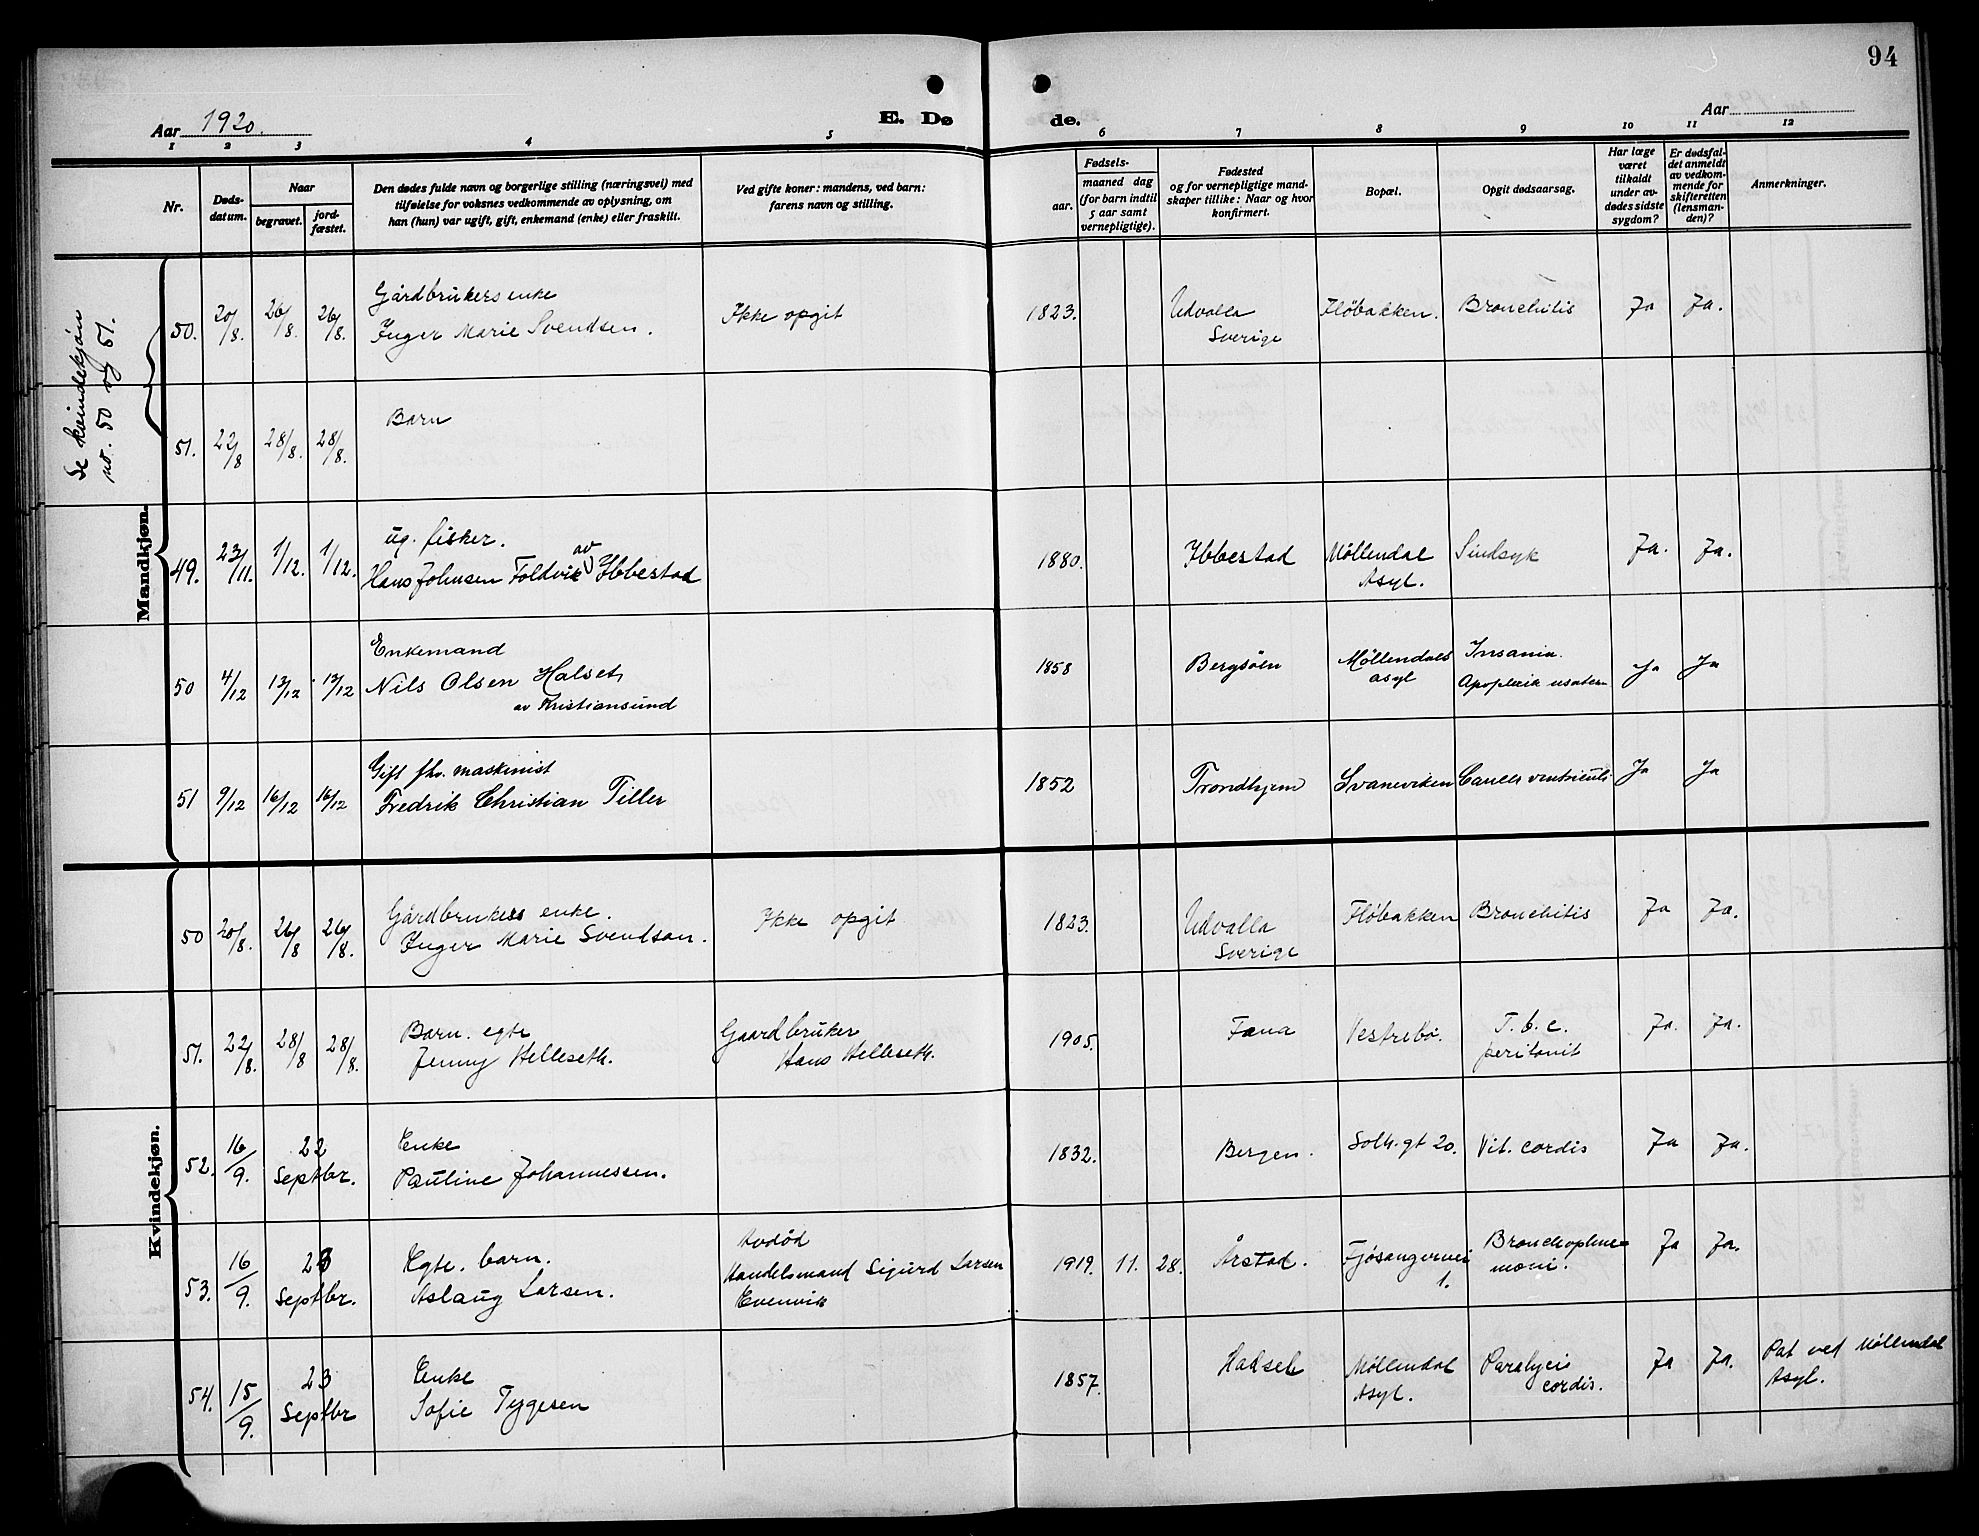 94
Aar 1920.
E. Dø
de.
Aar
1 2 3 4 5 6 7 8 9 10 11 12
Nr.
Døds-
datum.
Naar
begravet.
jord-
fæstet.
Den dødes fulde navn og borgerlige stilling (næringsvei) med
tilføielse for voksnes vedkommende av oplysning, om
han (hun) var ugift, gift, enkemand (enke) eller fraskilt.
Ved gifte koner: mandens, ved barn:
farens navn og stilling.
Fødsels-
aar.
maaned dag
(for barn indtil
5 aar samt
vernepligtige).
Fødested
og for vernepligtige mand-
skaper tillike: Naar og hvor
konfirmert.
Bopæl.
Opgit dødsaarsag.
Har læge
været
tilkaldt
under av-
dødes sidste
sygdom?
Er dødsfal-
det anmeldt
av vedkom-
mende for
skifteretten
(lensman-
den)?
Anmerkninger.
Se kvindekjøn
nr. 50 og 51.
Mandkjøn.
50. 20/8. 26/8. 26/8.
Gårdbrukers enke
Inger Marie Svendsen.
Ikke opgit
1823.
Udvalla
Sverige
Fløbakken. Bronchitis Ja Ja.
51. 22/8 28/8. 28/8.
Barn
49. 23/11. 1/12. 1/12.
ug. fisker.
Hans Johnsen Foldvik av Ibbestad
1880. Ibbestad
Møllendal
Asyl.
Sindsyk Ja. Ja.
50 4/12 13/12 13/12
Enkemand
Nils Olsen Halset,
av Kristiansund
1858 Bergsöen
Møllendals
asyl
Insania.
Apoplexia
Ja Ja
51 9/12 16/12 16/12
Gift fhv. maskinist
Fredrik Christian Tiller
1852 Trondhjem Svaneviken Cancer ventriculi Ja Ja
Kvindekjøn.
50 20/8. 26/8 26/8.
Gårdbrukers enke.
Inger Marie Svendsen.
Ikke opgit
1823.
Udvalla
Sverige
Fløbakken Bronchitis Ja Ja.
51. 22/8. 28/8 28/8.
Barn. egte
Jenny Helleseth.
Gaardbruker
Hans Helleseth.
1905. Fana Vestrebø.
T. b. c.
peritonit
Ja. Ja.
52. 16/9.
22
Septbr.
Enke
Pauline Johannessen.
1832. Bergen. Solh. gt 20. Vit. cordis Ja Ja.
53. 16/9.
23
Septbr.
Egte. barn.
Aslaug Larsen.
Avdød
Handelsmand Sigurd Larsen
Evenvik
1919. 11. 28. Årstad.
Fjøsangervei
1.
Bronchopneu-
moni.
Ja Ja.
54. 15/9.
23
Septbr
Enke
Sofie Tygesen
1857. Hadsel
Møllendal
Asyl.
Paralysis
cordis.
Ja Ja.
Pat ved Møllendal
Asyl.